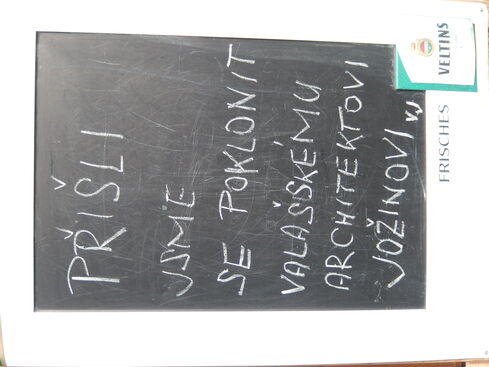 PŘIŠLI
JSME
SE POKLONIT
VALAŠSKÉMU
ARCHITEKTOVI
JOŽINOVI
FRISCHES VELTINS